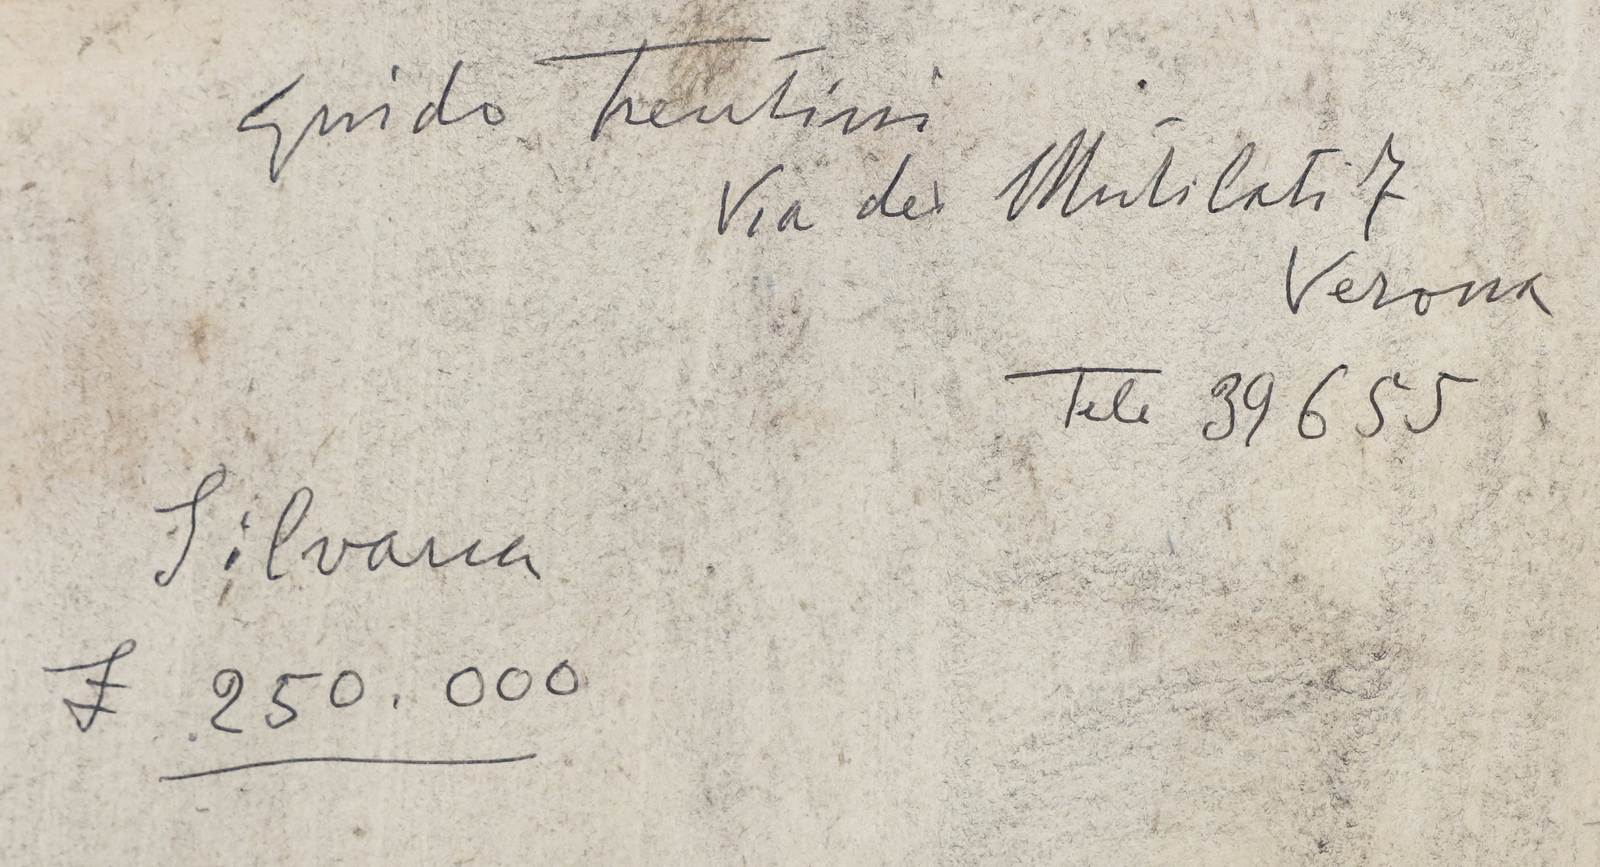 Guido Trentini
Via dei Mutilati 7
Verona
Tele 39655
Silvana
£ 250.000